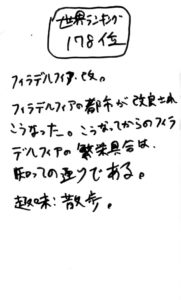 世界ランキング
178位
フィラデルフィア・改。
フィラデルフィアの都市が改良され
こうなった。こうなってからのフィラ
デルフィアの繁栄具合は、
知っての通りである。
趣味:散歩。